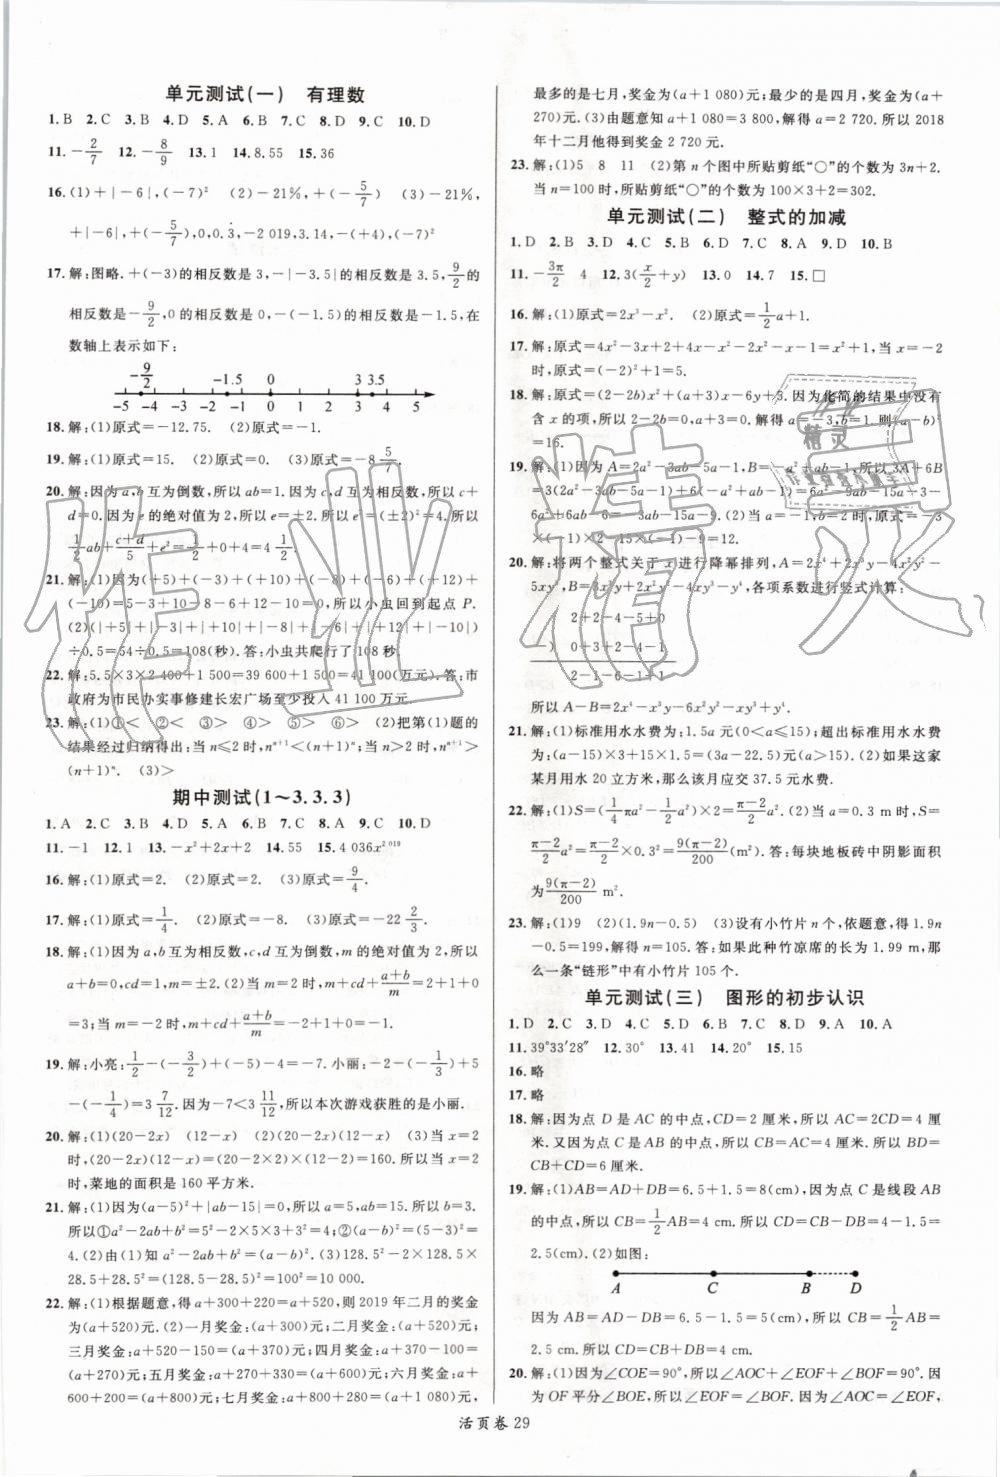 单元测试(一) 有理数
1.B 2.C 3.B 4.D 5.A 6.B 7.C 8.A 9.C 10.D
11.-2/7 12.-8/9 13.1 14.8.55 15.36
16.(1)+|-6|,(-7)² (2)-21%,+(-5/7) (3)-21%,
+|-6|,+(-5/7),0,0.3̇,-2 019,3.14,-(+4),(-7)²
17.解:图略.+(-3)的相反数是3,-|-3.5|的相反数是3.5,9/2的
相反数是-9/2,0的相反数是0,-(-1.5)的相反数是-1.5,在
数轴上表示如下:
-9/2 -1.5 0 3 3.5
-5 -4 -3 -2 -1 0 1 2 3 4 5
18.解:(1)原式=-12.75. (2)原式=-1.
19.解:(1)原式=15. (2)原式=0. (3)原式=-8 5/7.
20.解:因为a,b互为倒数,所以ab=1.因为c,d互为相反数,所以c+
d=0.因为e的绝对值为2,所以e=±2.所以e²=(±2)²=4.所以
1/2ab+(c+d)/5+e²=1/2+0+4=4 1/2.
21.解:(1)因为(+5)+(-3)+(+10)+(-8)+(-6)+(+12)+
(-10)=5-3+10-8-6+12-10=0,所以小虫回到起点P.
(2)(|+5|+|-3|+|+10|+|-8|+|-6|+|+12|+|-10|)
÷0.5=54÷0.5=108(秒).答:小虫共爬行了108秒.
22.解:5.5×3×2 400+1 500=39 600+1 500=41 100(万元).答:市
政府为市民办实事修建长宏广场至少投入41 100万元.
23.解:(1)①< ②< ③> ④> ⑤> (2)把第(1)题的
结果经过归纳得出:当n≤2时,nⁿ⁺¹<(n+1)ⁿ;当n>2时,nⁿ⁺¹>
(n+1)ⁿ. (3)>
期中测试(1~3.3.3)
1.A 2.C 3.B 4.D 5.A 6.B 7.C 8.A 9.C 10.D
11.-1 12.1 13.-x²+2x+2 14.55 15.4 036x²⁰¹⁹
16.解:(1)原式=2. (2)原式=2. (3)原式=9/4.
17.解:(1)原式=1/4. (2)原式=-8. (3)原式=-22 2/3.
18.解:(1)因为a,b互为相反数,c,d互为倒数,m的绝对值为2,所以
a+b=0,cd=1,m=±2.(2)当m=2时,m+cd+(a+b)/m=2+1+0
=3;当m=-2时,m+cd+(a+b)/m=-2+1+0=-1.
19.解:小亮:1/2-(-3/2)+(-5)-(-4)=1.小丽:-2-(-1/3)+5
-(-1/4)=3 7/12.因为-7<3 11/12,所以本次游戏获胜的是小丽.
20.解:(1)(20-2x) (12-x) (2)(20-2x)(12-x) (3)当x=2
时,(20-2x)(12-x)=(20-2×2)×(12-2)=160.所以当x=2
时,菜地的面积是160平方米.
21.解:(1)因为(a-5)²+|ab-15|=0,所以a=5,ab=15.所以b=3.
所以①a²-2ab+b²=5²-2×5×3+3²=4;②(a-b)²=(5-3)²=
4.(2)由(1)知a²-2ab+b²=(a-b)²,所以128.5²-2×128.5×
28.5+28.5²=(128.5-28.5)²=100²=10 000.
22.解:(1)根据题意,得a+300+220=a+520,则2019年二月的奖金
为(a+520)元.(2)一月奖金:(a+300)元;二月奖金:(a+520)元;
三月奖金:a+520-150=(a+370)元;四月奖金:a+370-100=
(a+270)元;五月奖金:a+270+330=(a+600)元;六月奖金:a+600
+200=(a+800)元;七月奖金:a+800+280=(a+1 080)元,奖金
最多的是七月,奖金为(a+1 080)元;最少的是四月,奖金为(a+
270)元.(3)由题意知a+1 080=3 800,解得a=2 720.所以2018
年十二月他得到奖金2 720元.
23.解:(1)5 8 11 (2)第n个图中所贴剪纸“○”的个数为3n+2.
当n=100时,所贴剪纸“○”的个数为100×3+2=302.
单元测试(二) 整式的加减
1.D 2.B 3.D 4.C 5.C 6.B 7.D 8.A 9.D 10.B
11.-3π/2 4 12.3(x/2+y) 13.0 14.7 15.□
16.解:(1)原式=2x³-x². (2)原式=1/2a+1.
17.解:原式=4x²-3x+2+4x-x²-2x²-x-1=x²+1,当x=-2
时,原式=(-2)²+1=5.
18.解:原式=(2-2b)x²+(a+3)x-6y+3.因为化简的结果中没有
含x的项,所以2-2b=0,a+3=0.解得a=-3,b=1.则(a-b)²
=16.
19.解:(1)因为A=2a²-3ab-5a-1,B=-a²+ab-1,所以3A+6B
=3(2a²-3ab-5a-1)+6(-a²+ab-1)=6a²-9ab-15a-3-
6a²+6ab-6=-3ab-15a-9.(2)当a=-1,b=2时,原式=-3
×(-1)×2-15×(-1)-9=12.
20.解:将两个整式关于x进行降幂排列,A=2x⁴+2x³y-4x²y²-
5xy³,B=3x³y+2x²y²-4xy³-y⁴,各项系数进行竖式计算:
2+2-4-5+0
-)0+3+2-4-1
2-1-6-1+1
所以A-B=2x⁴-x³y-6x²y²-xy³+y⁴.
21.解:(1)标准用水水费为:1.5a元(0<a≤15);超出标准用水水费
为:(a-15)×3+15×1.5=(3a-22.5)元(a>15).(2)如果这家
某月用水20立方米,那么该月应交37.5元水费.
22.解:(1)S=(1/4πa²-1/2a²)×2=(π-2)/2a².(2)当a=0.3 m时,S=
(π-2)/2a²=(π-2)/2×0.3²=9(π-2)/200(m²).答:每块地板砖中阴影面积
为9(π-2)/200 m².
23.解:(1)9 (2)(1.9n-0.5) (3)设有小竹片n个,依题意,得1.9n
-0.5=199,解得n=105.答:如果此种竹凉席的长为1.99 m,那
么一条“链形”中有小竹片105个.
单元测试(三) 图形的初步认识
1.D 2.C 3.D 4.C 5.C 6.B 7.C 8.D 9.A 10.A
11.39°33′28″ 12.30° 13.41 14.20° 15.15
16.略
17.略
18.解:因为点D是AC的中点,CD=2厘米,所以AC=2CD=4厘
米.又因为点C是AB的中点,所以CB=AC=4厘米.所以BD=
CB+CD=6厘米.
19.解:(1)因为AB=AD+DB=6.5+1.5=8(cm),点C是线段AB
的中点,所以CB=1/2AB=4 cm.所以CD=CB-DB=4-1.5=
2.5(cm).(2)如图:
A C B D
因为AB=AD-DB=6.5-1.5=5(cm),所以CB=1/2AB=
2.5 cm.所以CD=CB+DB=4 cm.
20.解:(1)因为∠COE=90°,所以∠AOC+∠EOF+∠AOF=90°.
因为OF平分∠BOE,所以∠BOF=∠EOF=∠AOF+∠AOE,
活页卷 29
作业精灵
精灵